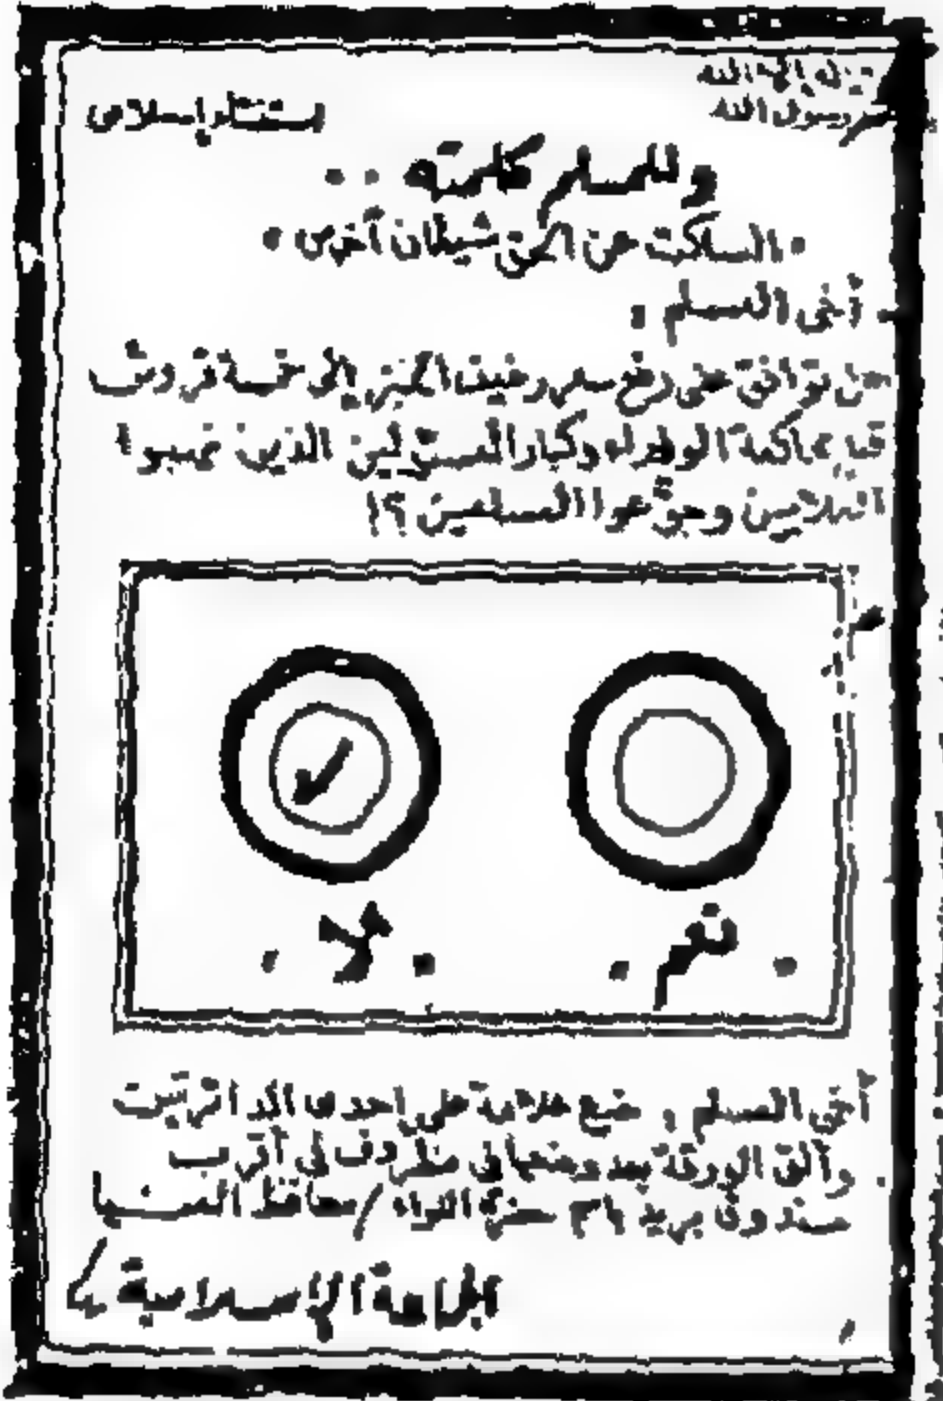 إله إلا الله
رسول الله
استفتاء إسلامى
وللمسلم كلمته ..
« الساكت عن الحق شيطان أخرس »
أخى المسلم ،
توافق على رفع سعر رغيف الخبز إلى خمسة قروش
محاكمة الوزراء وكبار المسئولين الذين نهبوا
الملايين وجوّعوا المسلمين ؟!
نعم
لا
أخى المسلم ، ضع علامة على احدى الدائرتين
وألق الورقة بعد وضعها فى مظروف فى أقرب
صندوق بريد حضرة اللواء / محافظ المنيا
الجماعة الإسلامية